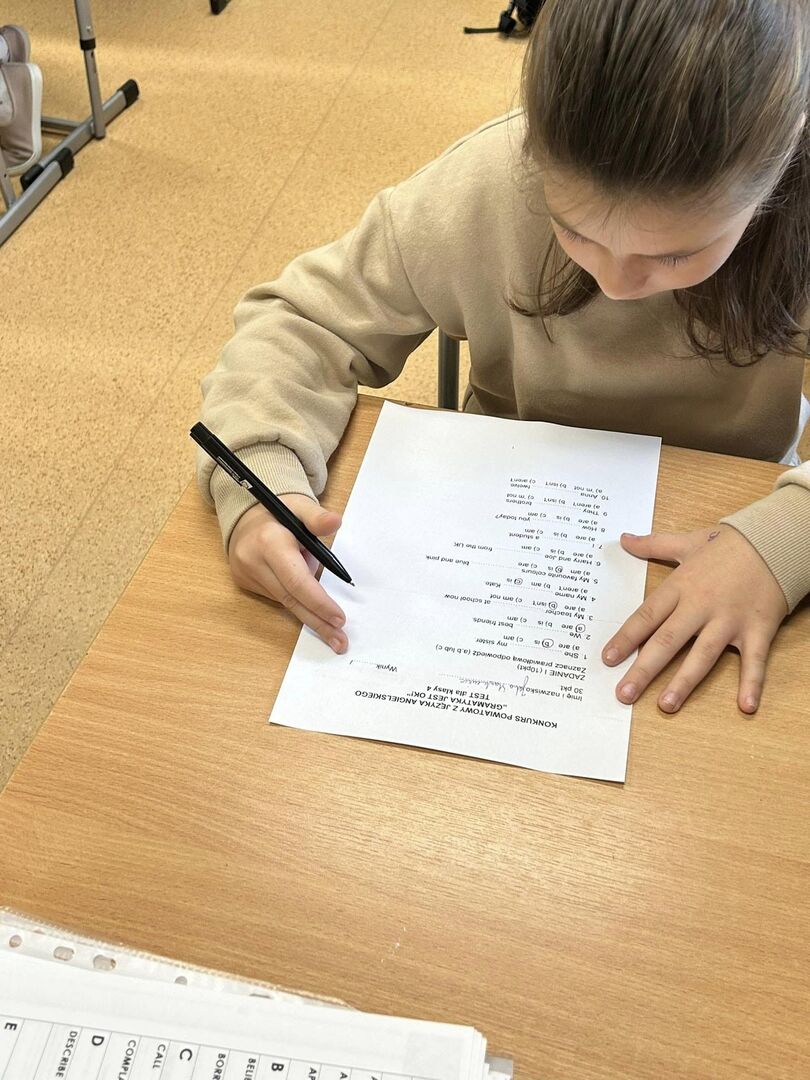 KONKURS POWIATOWY Z JĘZYKA ANGIELSKIEGO
„GRAMATYKA JEST OK!"
TEST dla klasy 4
Imię i nazwisko
30 pkt Wynik........../
ZADANIE I (10pkt)
Zaznacz prawidłową odpowiedź (a,b lub c)
1. She .......... my sister
a) are b) is c) am
2. We .......... best friends.
a) are b) is c) am
3. My teacher .......... at school now
a) are b) isn't c) am not
4 My name .......... Kate
a) aren't b) am c) is
5. My favourite colours .......... blue and pink
a) am b) is c) are
6 Harry and Joe .......... from the UK
a) are b) is c) am
7 I .......... a student
a) are b) is c) am
8 How .......... you today?
a) are b) is c) am
9 They .......... brothers
a) aren't b) isn't c) 'm not
10 Anna .......... twelve
a) 'm not b) isn't c) aren't
B
C
CALL
D
DESCRIBE
E